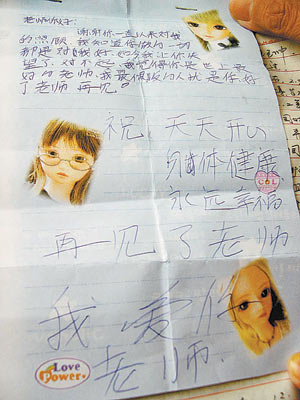 老师你好:
谢谢你一直以来对我
的照顾 我知道你做的一切
都是对我好 如今我让你失
望了 对不起 我觉得你是世上最
好的老师 我最佩服的人就是你 好
了老师 再见!
祝 天天开心
身体健康
永远幸福
再见了老师
我爱你
老师.
Love
Power